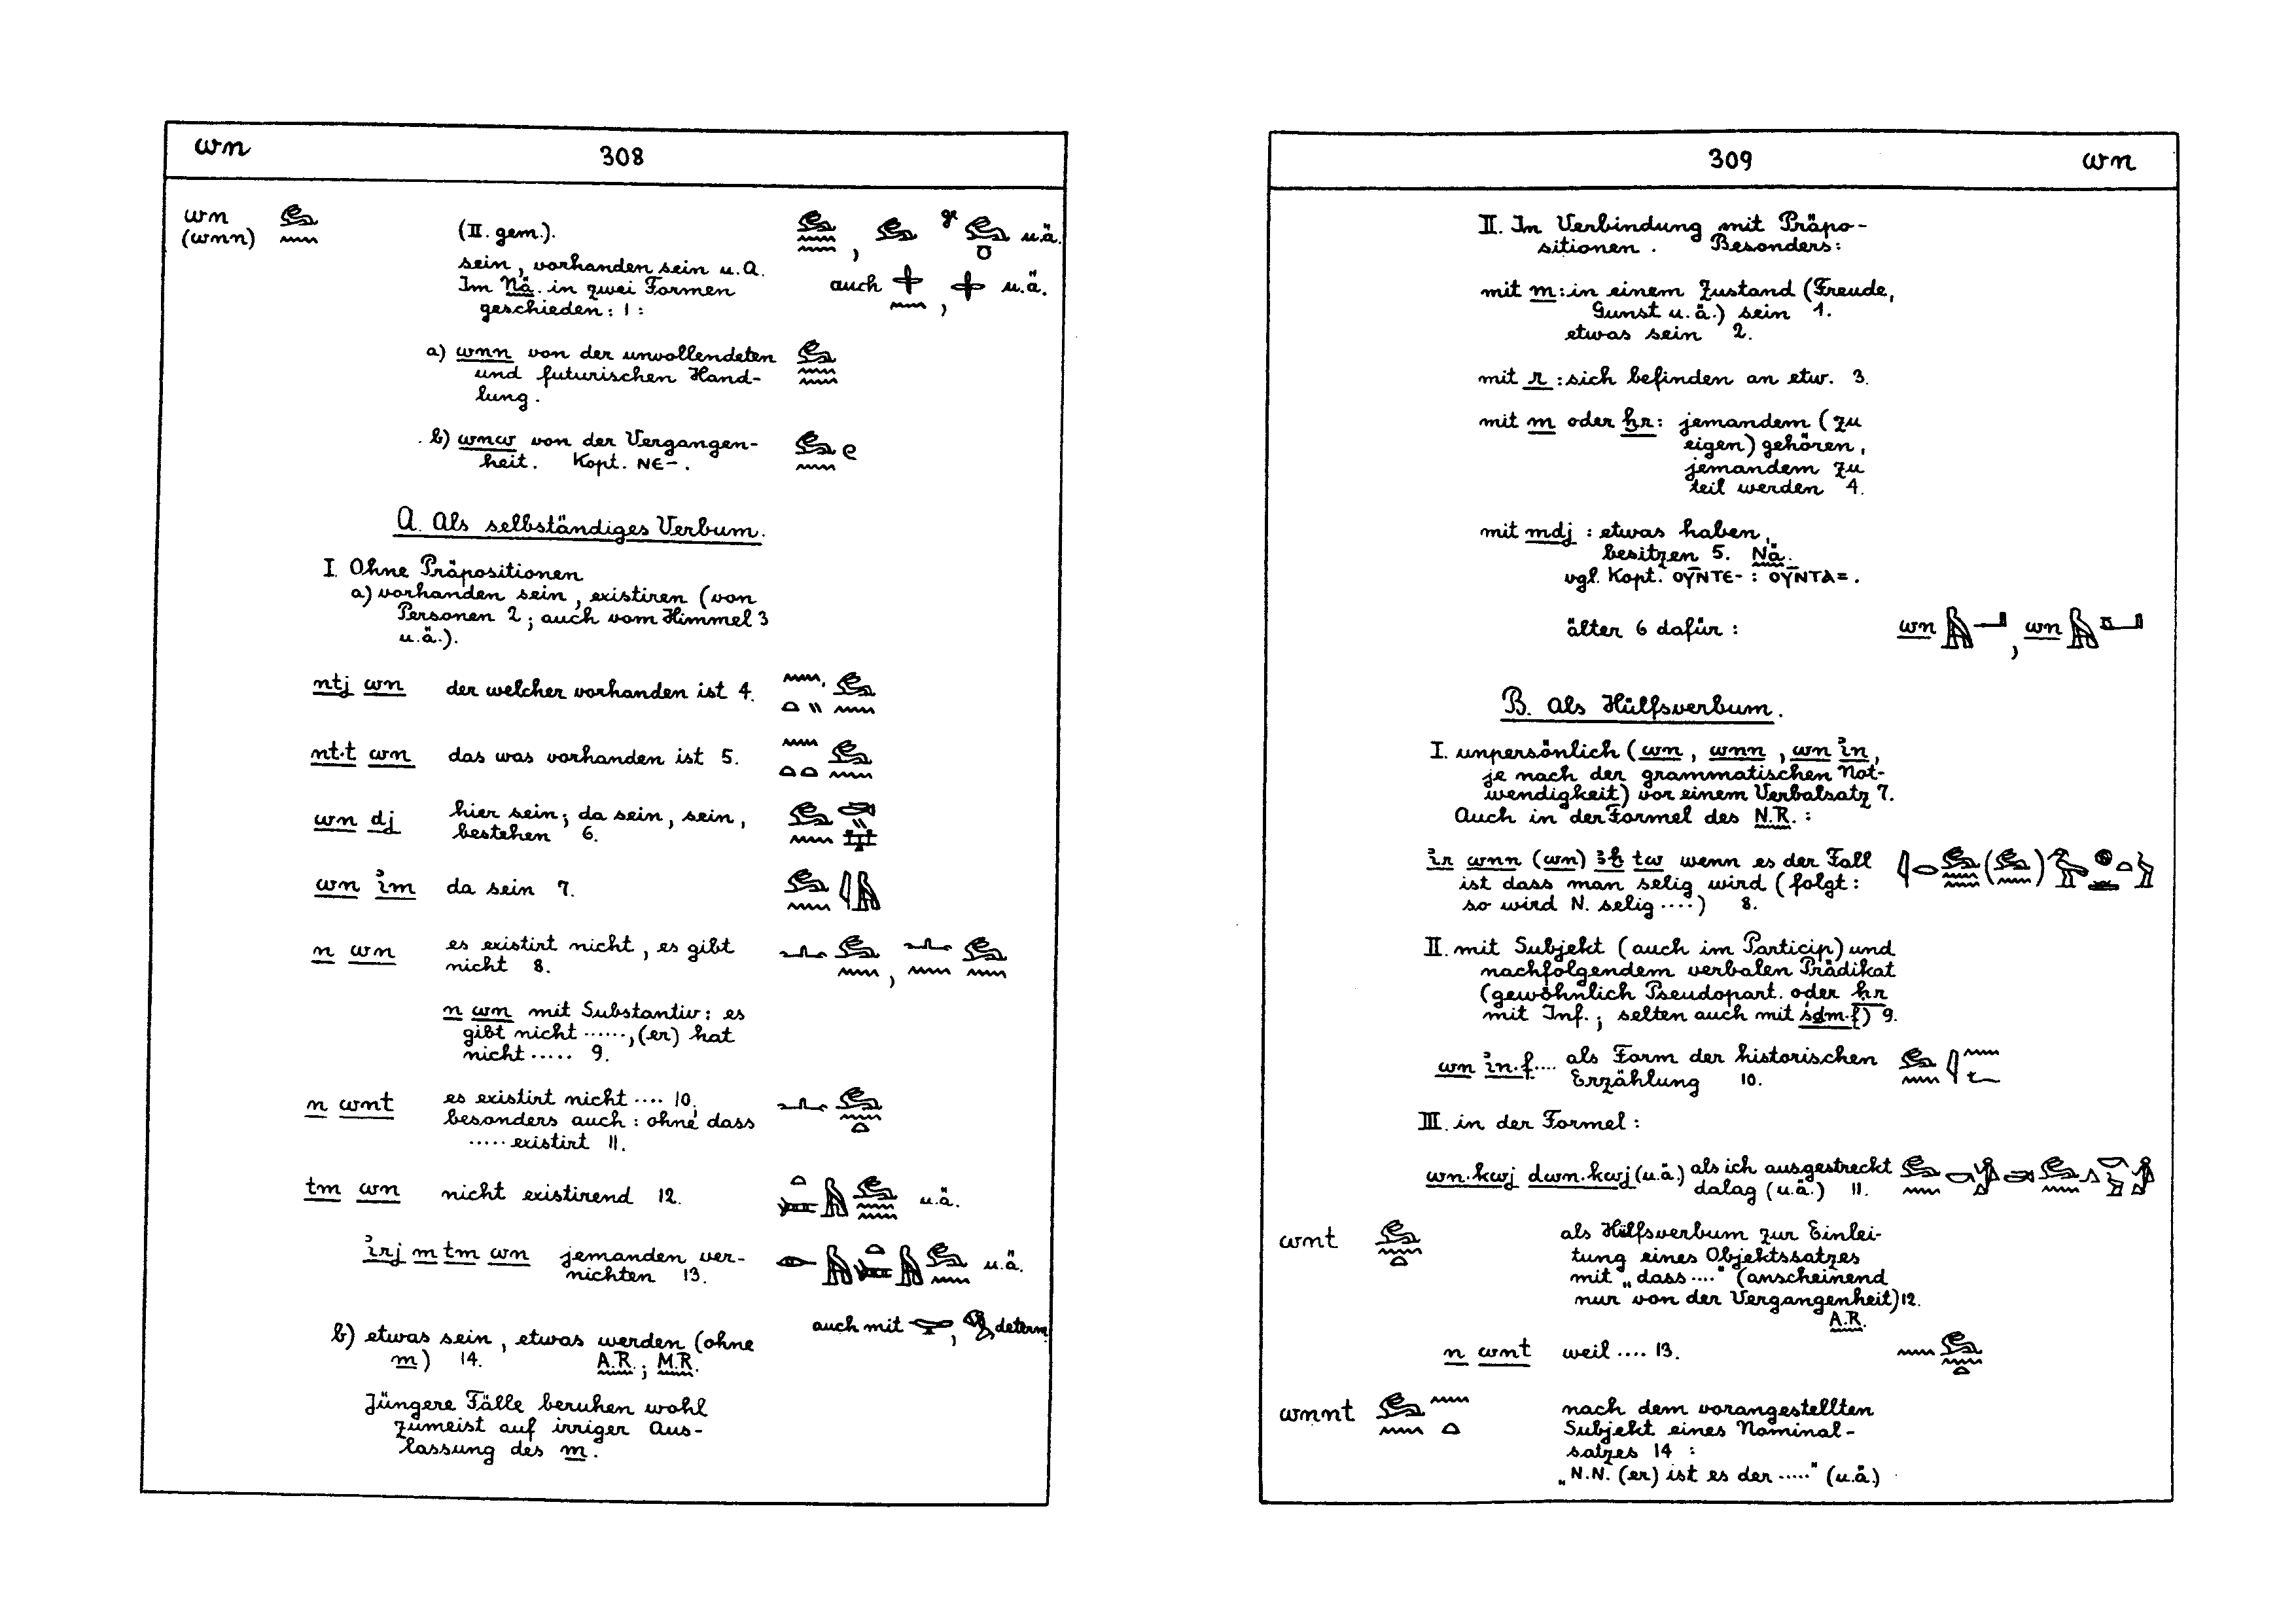 wn 308
wn
(wnn)
(II. gem.).
u.ä.
sein, vorhanden sein u.a.
Im Nä. in zwei Formen
geschieden: 1:
auch , u.ä.
a) wnn von der unvollendeten
und futurischen Hand-
lung.
b) wnw von der Vergangen-
heit. Kopt. ⲚⲈ-.
A. Als selbständiges Verbum.
I. Ohne Präpositionen
a) vorhanden sein, existiren (von
Personen 2; auch vom Himmel 3
u.ä.).
ntj wn der welcher vorhanden ist 4.
nt·t wn das was vorhanden ist 5.
wn dj hier sein; da sein, sein,
bestehen 6.
wn im da sein 7.
n wn es existirt nicht, es gibt
nicht 8.
n wn mit Substantiv: es
gibt nicht ······, (er) hat
nicht ····· 9.
n wnt es existirt nicht ···· 10,
besonders auch: ohne dass
····· existirt 11.
tm wn nicht existirend 12. u.ä.
irj m tm wn jemanden ver-
nichten 13. u.ä.
auch mit , determ.
b) etwas sein, etwas werden (ohne
m) 14. A.R.; M.R.
Jüngere Fälle beruhen wohl
zumeist auf irriger Aus-
lassung des m.
309 wn
II. In Verbindung mit Präpo-
sitionen. Besonders:
mit m: in einem Zustand (Freude,
Gunst u.ä.) sein 1.
etwas sein 2.
mit r: sich befinden an etw. 3.
mit m oder ḫr: jemandem (zu
eigen) gehören,
jemandem zu
teil werden 4.
mit mdj: etwas haben,
besitzen 5. Nä.
vgl. Kopt. ⲞⲨⲚⲦⲈ- : ⲞⲨⲚⲦⲀ=.
älter 6 dafür: wn , wn
B. Als Hülfsverbum.
I. unpersönlich (wn, wnn, wn in,
je nach der grammatischen Not-
wendigkeit) vor einem Verbalsatz 7.
Auch in der Formel des N.R.:
ir wnn (wn) ꜣḫ tw wenn es der Fall
ist dass man selig wird (folgt:
so wird N. selig ····) 8.
II. mit Subjekt (auch im Particip) und
nachfolgendem verbalen Prädikat
(gewöhnlich Pseudopart. oder ḥr
mit Inf.; selten auch mit śḏm·f) 9.
wn in·f···· als Form der historischen
Erzählung 10.
III. in der Formel:
wn·kwj dwn·kwj (u.ä.) als ich ausgestreckt
dalag (u.ä.) 11.
wnt als Hülfsverbum zur Einlei-
tung eines Objektssatzes
mit „dass ····" (anscheinend
nur von der Vergangenheit) 12.
A.R.
n wnt weil ···· 13.
wnnt nach dem vorangestellten
Subjekt eines Nominal-
satzes 14 :
„N.N. (er) ist es der ·····" (u.ä.)